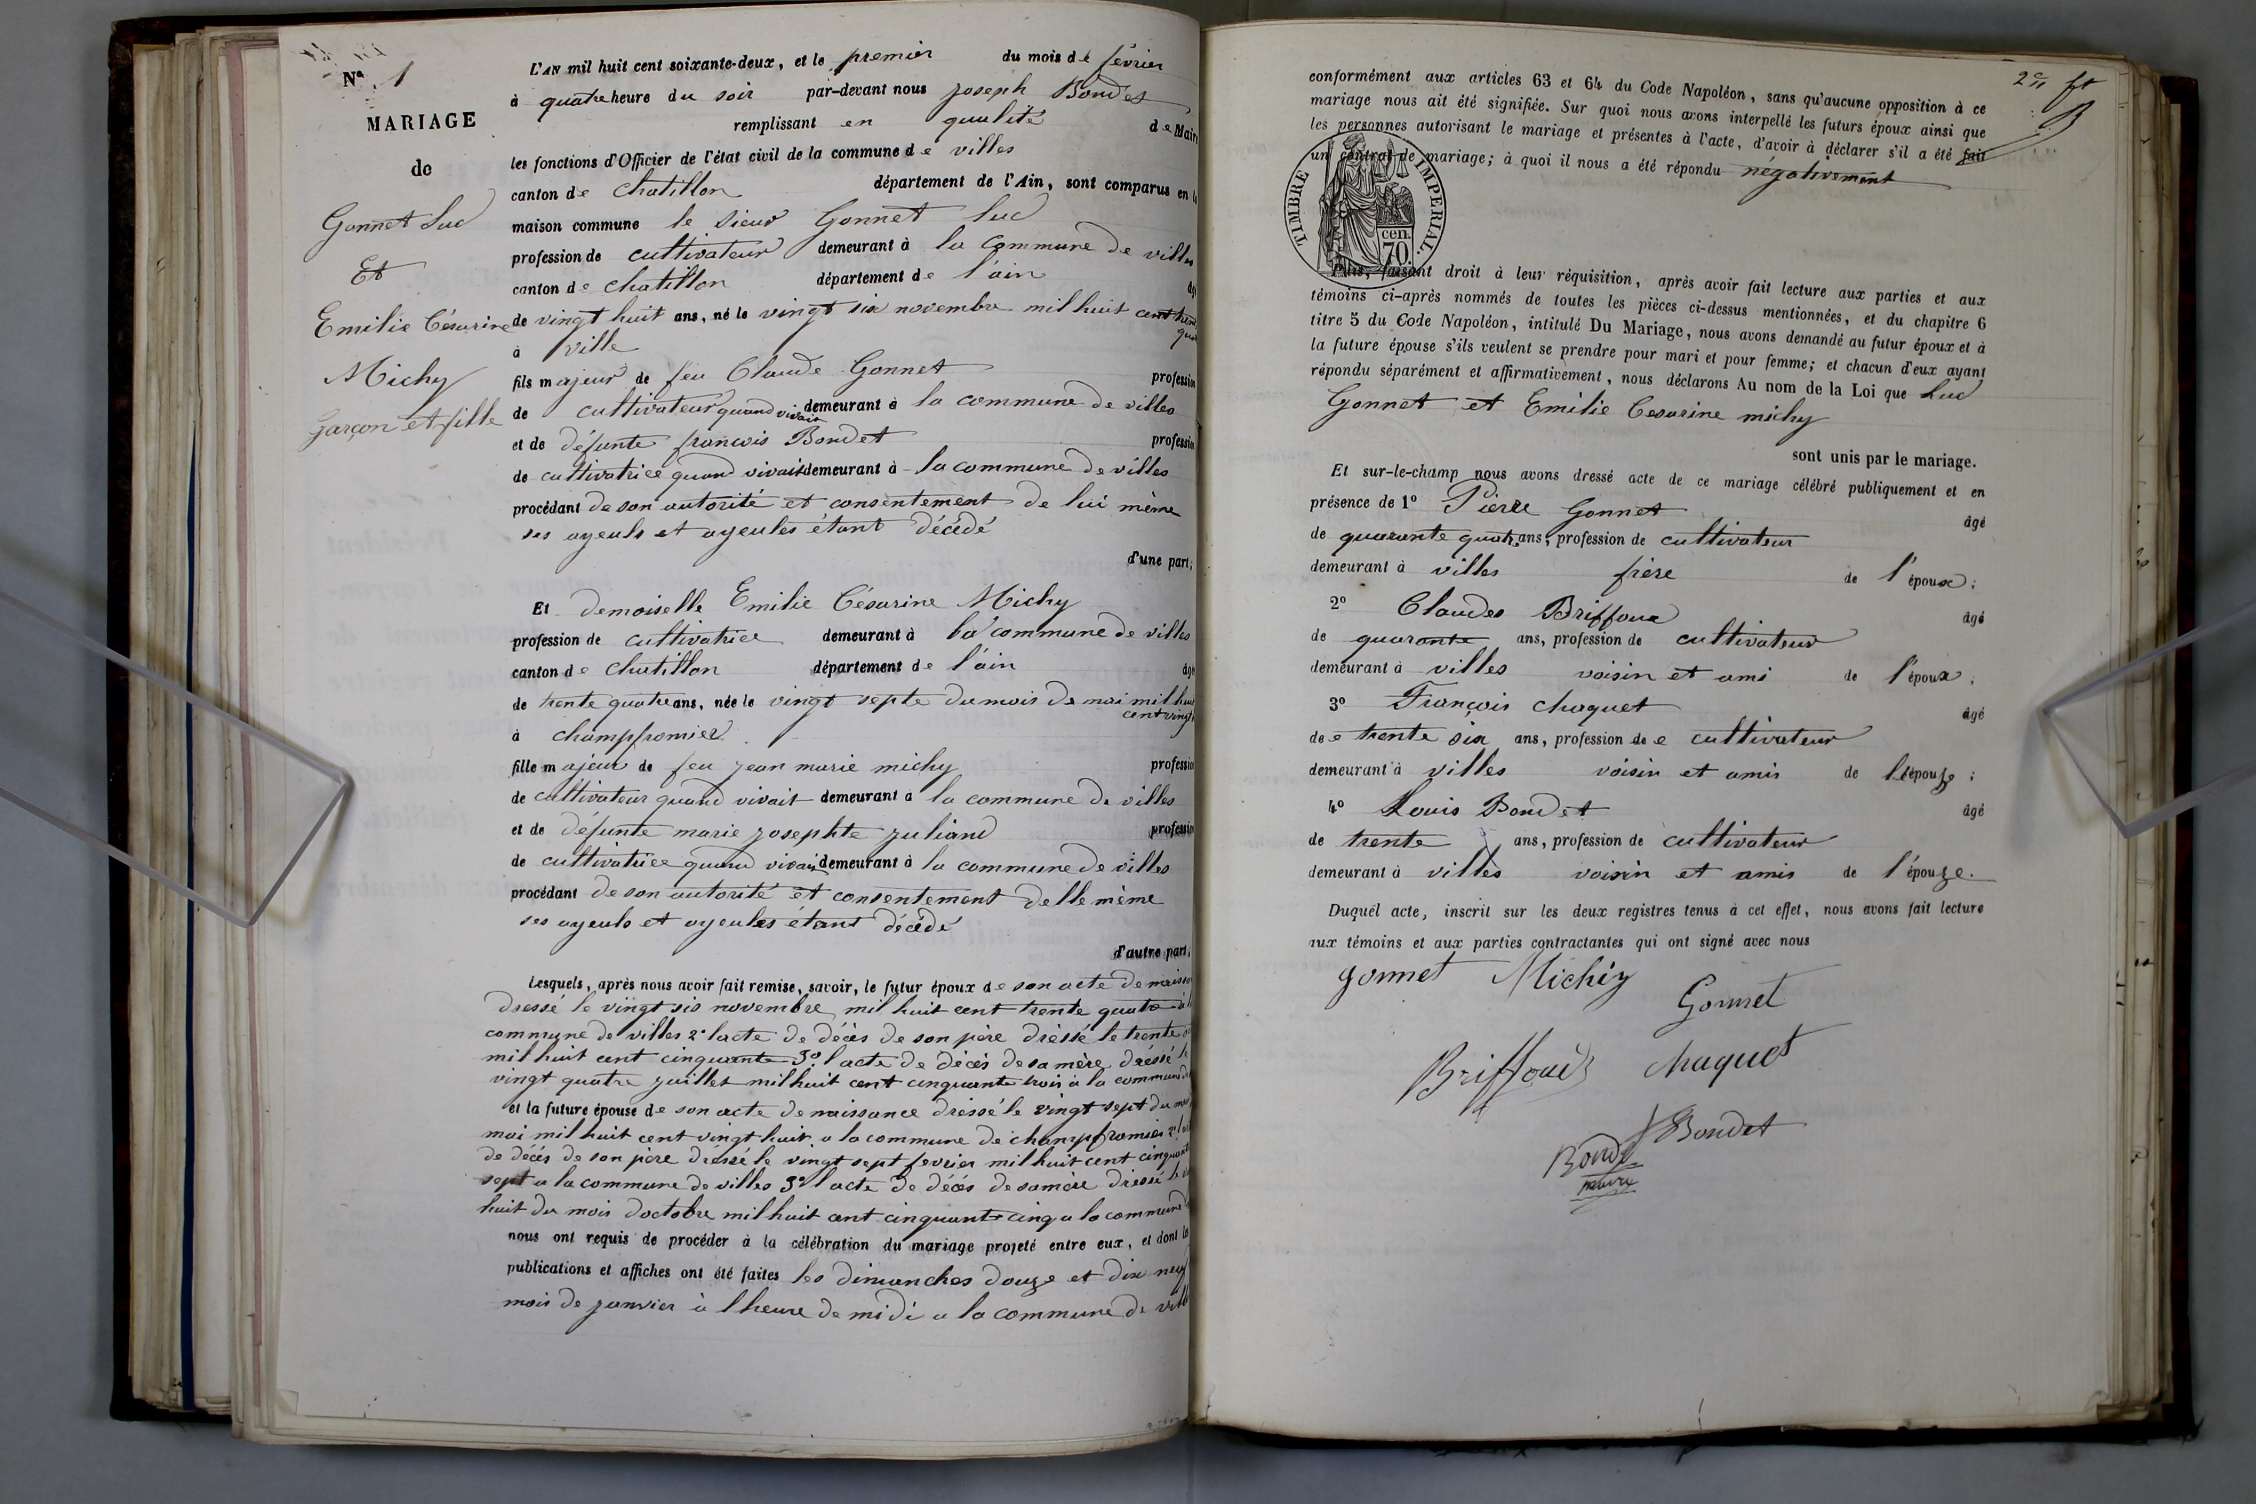 Nº 1
MARIAGE
de
Gonnet Luc
Et
Emilie Césarine
Michy
garçon et fille
L'AN mil huit cent soixante-deux, et le premier du mois de février
à quatre heure du soir par-devant nous joseph Bondet
remplissant en qualité de Maire
les fonctions d'Officier de l'état civil de la commune de villes
canton de Chatillon département de l'Ain, sont comparus en la
maison commune le sieur Gonnet Luc
profession de cultivateur demeurant à la Commune de villes
canton de Chatillon département de l'ain âgé
de vingt huit ans, né le vingt six novembre mil huit cent trente
quatre
à ville
fils majeur de feu Claude Gonnet profession
de cultivateur quand vivait demeurant à la commune de villes
et de défunte francois Bondet profession
de cultivatrice quand vivait demeurant à la commune de villes
procédant de son autorité et consentement de lui même
ses ayeuls et ayeules étant décédé
d'une part;
Et demoiselle Emilie Césarine Michy
profession de cultivatrice demeurant à la commune de villes
canton de Chatillon département de l'ain âgé
de trente quatre ans, née le vingt septe du mois de mai mil huit
cent vingt
à champfromier
fille majeur de feu jean marie michy profession
de cultivateur quand vivait demeurant a la commune de villes
et de défunte marie josephte juliand profession
de cultivatrice quand vivait demeurant à la commune de villes
procédant de son autorité et consentement delle même
ses ayeuls et ayeules étant décédé
d'autre part;
Lesquels, après nous avoir fait remise, savoir, le futur époux de son acte de naissan
dressé le vingt six novembre mil huit cent trente quatre à la
commune de villes 2º lacte de décès de son père dressé le trente
mil huit cent cinquante 3º l'acte de décès de sa mère dréssé le
vingt quatre juillet mil huit cent cinquante trois à la commune de
et la future épouse de son acte de naissance dressé le vingt sept du mois
mai mil huit cent vingt huit a la commune de champfromier 2º l'acte
de décés de son père dréssé le vingt sept fevrier mil huit cent cinquante
sept a la commune de villes 3º l'acte de décés de samère dressé le
huit du mois doctobre mil huit cent cinquante cinq a la commune de
nous ont requis de procéder à la célébration du mariage projeté entre eux, et dont les
publications et affiches ont été faites les dimanches douze et dix neuf
mois de janvier à lheure de midi a la commune de ville
2e ft
B
conformément aux articles 63 et 64 du Code Napoléon, sans qu'aucune opposition à ce
mariage nous ait été signifiée. Sur quoi nous avons interpellé les futurs époux ainsi que
les personnes autorisant le mariage et présentes à l'acte, d'avoir à déclarer s'il a été fait
un contrat de mariage; à quoi il nous a été répondu négativement
TIMBRE IMPERIAL.
cen.
70.
Puis, faisant droit à leur réquisition, après avoir fait lecture aux parties et aux
témoins ci-après nommés de toutes les pièces ci-dessus mentionnées, et du chapitre 6
titre 5 du Code Napoléon, intitulé Du Mariage, nous avons demandé au futur époux et à
la future épouse s'ils veulent se prendre pour mari et pour femme; et chacun d'eux ayant
répondu séparément et affirmativement, nous déclarons Au nom de la Loi que Luc
Gonnet et Emilie Cesarine michy
sont unis par le mariage.
Et sur-le-champ nous avons dressé acte de ce mariage célébré publiquement et en
présence de 1º Pierre Gonnet âgé
de quarante quatre ans, profession de cultivateur
demeurant à villes frère de l'époux;
2º Claudes Briffoux âgé
de quarante ans, profession de cultivateur
demeurant à villes voisin et ami de l'époux;
3º François Chaquet âgé
de trente six ans, profession de cultivateur
demeurant à villes voisin et amis de l'épouze;
4º Louis Bondet âgé
de trente ans, profession de cultivateur
demeurant à villes voisin et amis de l'épouze.
Duquel acte, inscrit sur les deux registres tenus à cet effet, nous avons fait lecture
aux témoins et aux parties contractantes qui ont signé avec nous
gonnet Michiy
Gonnet
Briffoud chaquet
Bondet
Bondet
maire